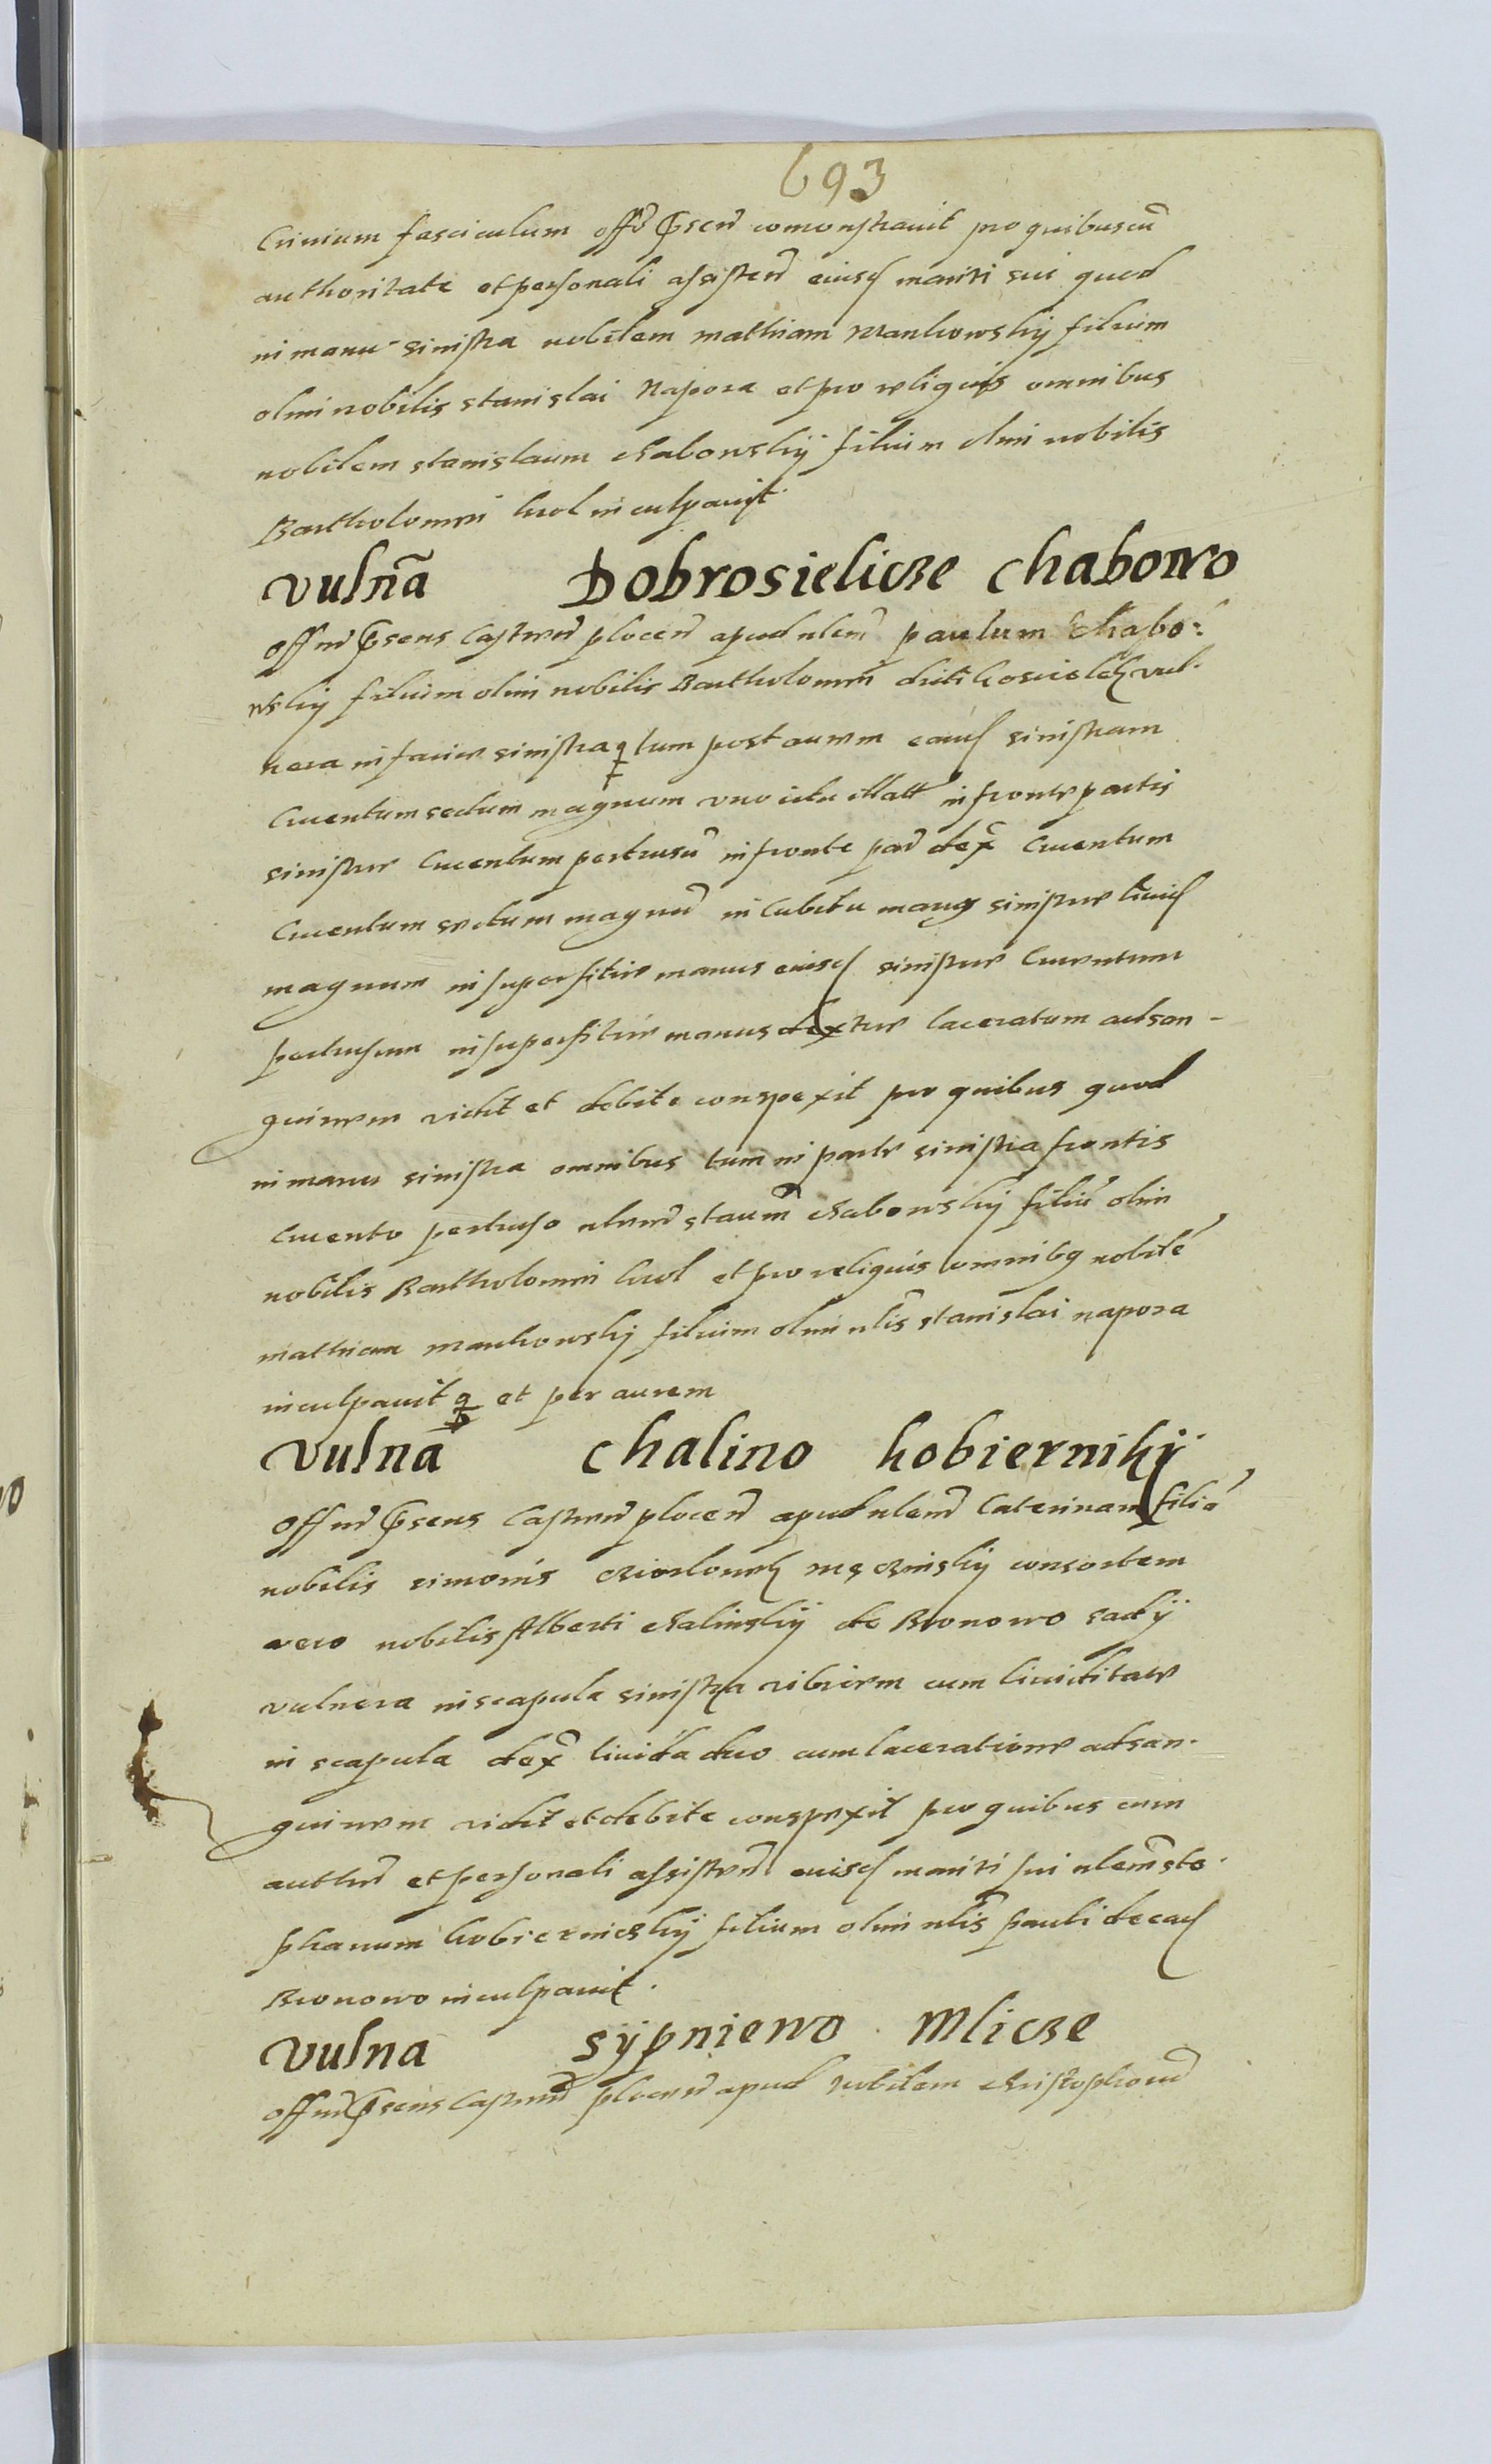 693
Crinium fasciculum offō pn̄sen̄ comonstravit pro quibus cū
authoritate et personali assisten̄ eiusd mariti sui quod
in manu sinistra nobilem Mathiam Mankowskij filium
olim nobilis Stanislai Napora et pro reliquis omnibus
nobilem Stanislaum Chabowskij filium olim nobilis
Bartholomei krol inculpavit.
Vulnā Dobrosielicze Chabowo
Offm pn̄sens Castren̄ plocen̄ apud nlem̄ Paulum Chabo:
wskij filium olim nobilis Bartholomei dicti vul-
nera in facie sinistra tum post aurem eand sinistram
Cruentum sectum magnum uno ictu illatt in fronte partis
sinistre Cruentum pertusū in fronte par̄ dex Cruentum
Cruentum sectum magnū in Cubitu manus sinistre livid
magnum in superficie manus eiusd sinistre Cruentum
pertusum in superficie manus dextre laceratum ad san-
guinem vidit et debite conspexit pro quibus quod
in manu sinistra omnibus tum in parte sinistra frontis
Cruento pertuso nlem̄ Staum̄ Chabowskij filiū olim
nobilis Bartholomei krol et pro reliquis omnibq nobilē
Mathiam Mankowskij filium olim nlis Stanislai Napora
inculpavit et per aurem
Vulnā Chalino kobiernikj
Offm pn̄sens Castren̄ plocen̄ apud nlem̄ Caterinam filiā
nobilis Simonis consortem
vero nobilis Alberti Chalinskij de Bronowo Sadij
vulnera in scapula sinistra vibicem cum lividitate
in scapula dex̄ livida duo cum laceratione ad san-
guinem vidit et debite conspexit pro quibus cum
authen̄ et personali assisten̄ eiusd mariti sui nlem̄ Ste-
phanum kobiernickij filium olim nlis Pauli de ead
Bronowo inculpavit.
Vulna Sÿpniewo Mlicze
Offm pn̄sens Castren̄ plocen̄ apud nobilem Christopherū